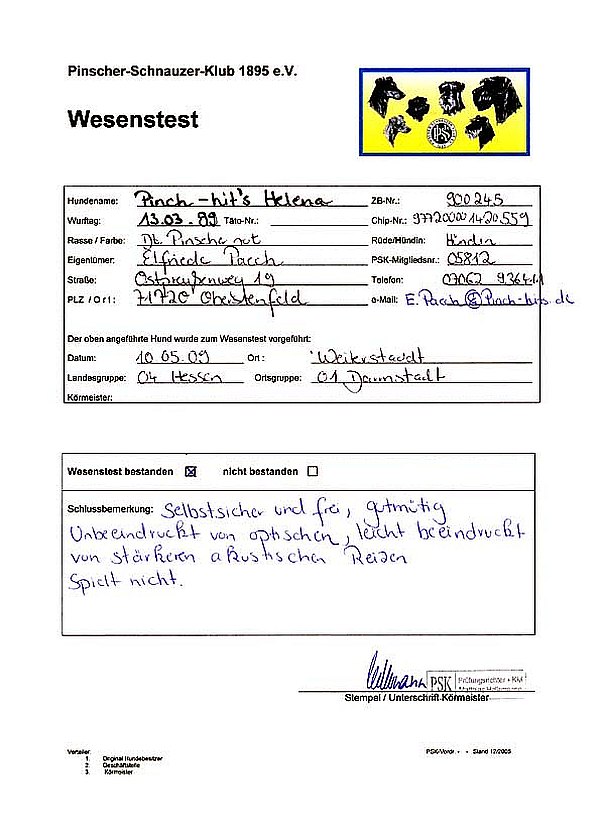 Pinscher-Schnauzer-Klub 1895 e.V.
Wesenstest
PSK
Hundename: Pinch-hit's Helena ZB-Nr.: 900245
Wurftag: 13.03.89 Täto-Nr.: Chip-Nr.: 977200001420559
Rasse / Farbe: Dt. Pinscher rot Rüde/Hündin: Hündin
Eigentümer: Elfriede Pacch PSK-Mitgliedsnr.: 05812
Straße: Ostpreußenweg 19 Telefon: 07062
PLZ / Ort: 71720 Oberstenfeld e-Mail: E.Pacch@Pinch-hits.de
Der oben angeführte Hund wurde zum Wesenstest vorgeführt:
Datum: 10.05.09 Ort: Weiterstadt
Landesgruppe: 04 Hessen Ortsgruppe: 01 Darmstadt
Körmeister:
Wesenstest bestanden ☒ nicht bestanden ☐
Schlussbemerkung: Selbstsicher und frei, gutmütig
Unbeeindruckt von optischen, leicht beeindruckt
von stärkeren akustischen Reizen
Spielt nicht.
PSK Prüfungsrichter + KM
Stempel / Unterschrift Körmeister
Verteiler:
1. Original Hundebesitzer
2. Geschäftsstelle
3. Körmeister
PSK-Vordr. - - Stand 12/2005